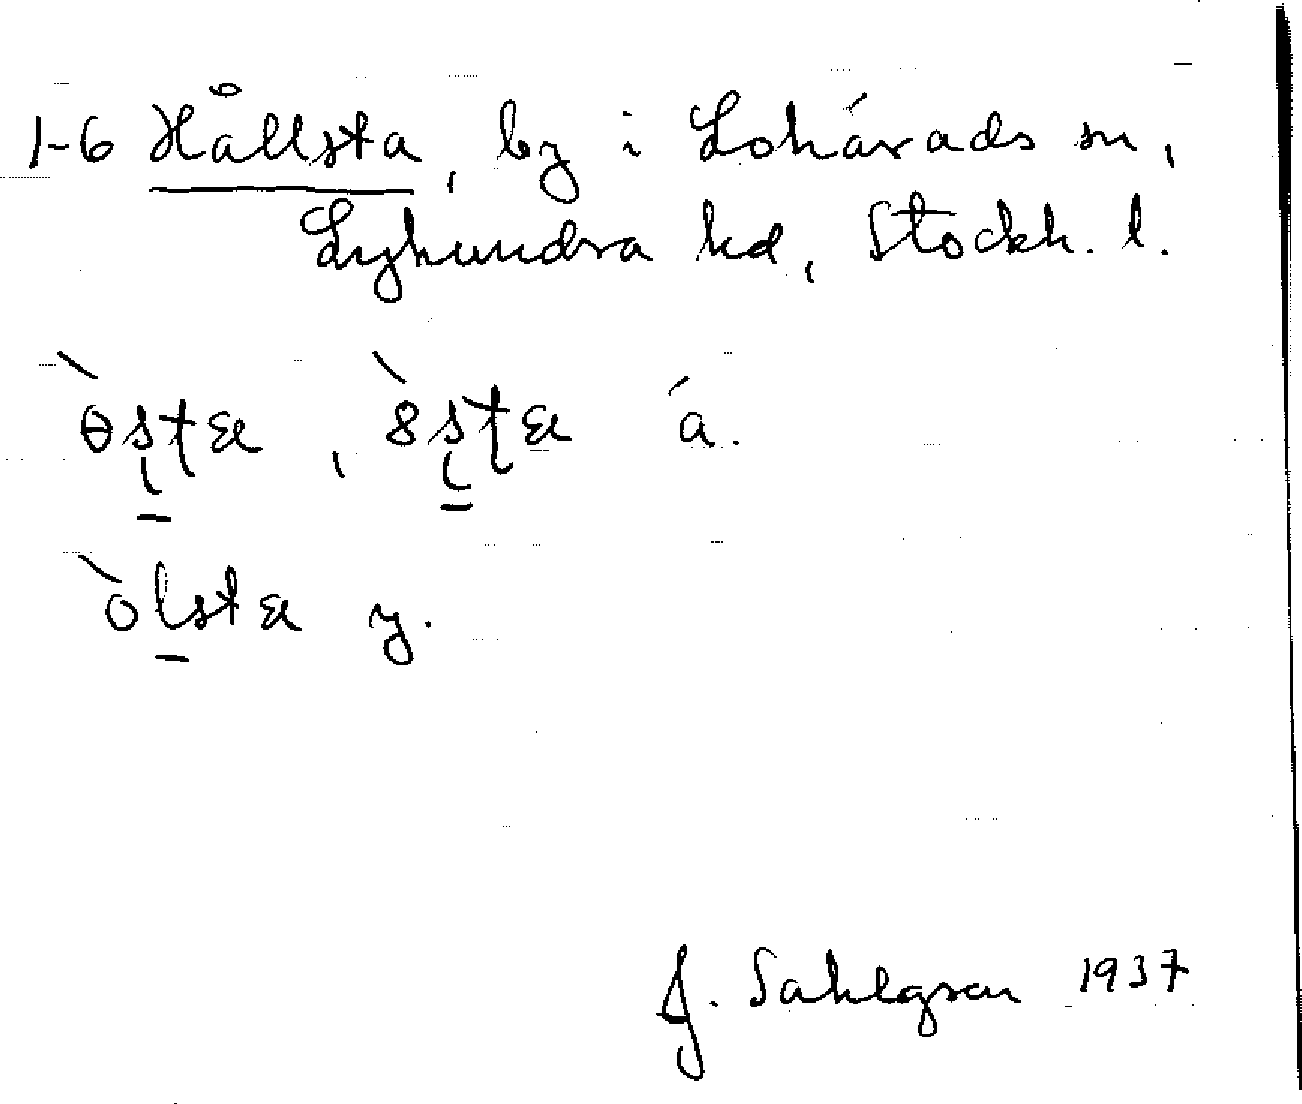 1-6 Hållsta, by i Lohärads sn,
Lyhundra hd, Stockh. l.
á.
y.
J. Sahlgren 1937